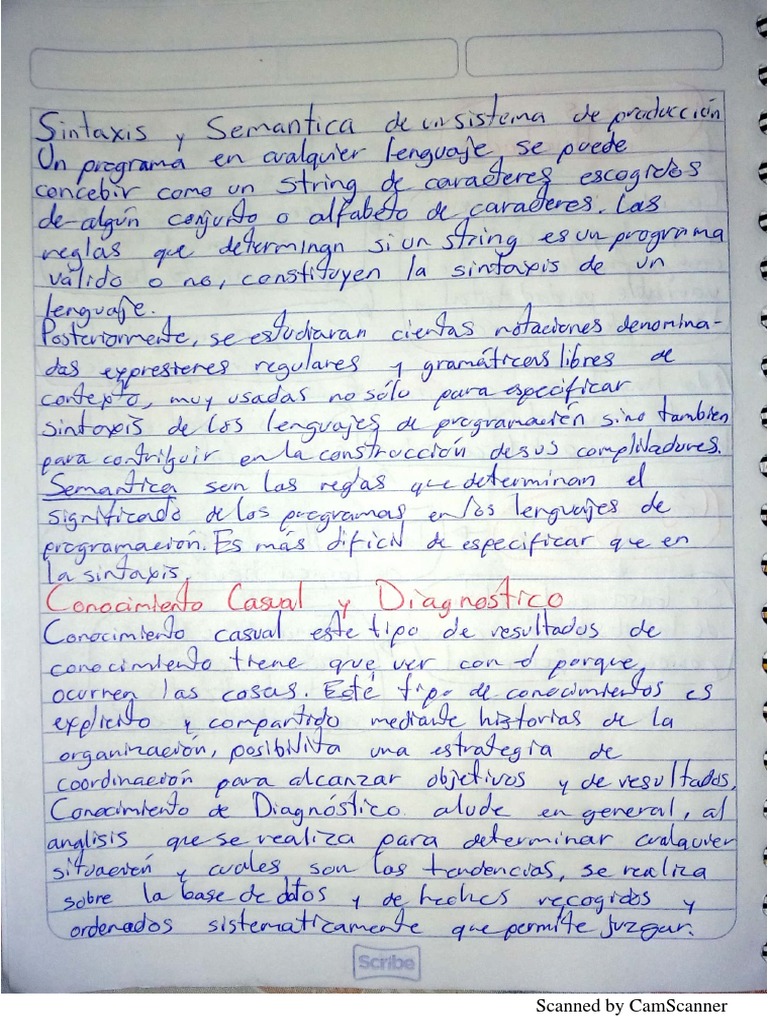 Sintaxis y Semantica de un sistema de producción
Un programa en cualquier lenguaje, se puede
concebir como un string de caracteres escogidos
de algún conjunto o alfabeto de caracteres. Las
reglas que determinan si un string es un programa
válido o no, constituyen la sintaxis de un
lenguaje.
Posteriormente, se estudiaran ciertas notaciones denomina-
das expresiones regulares y gramáticas libres de
contexto, muy usadas no sólo para especificar
sintaxis de los lenguajes de programación sino tambien
para contribuir en la construcción de sus compiladores.
Semantica son las reglas que determinan el
significado de los programas en los lenguajes de
programación. Es más dificil de especificar que en
la sintaxis.
Conocimiento Casual y Diagnostico
Conocimiento casual este tipo de resultados de
conocimiento tiene que ver con el porque
ocurren las cosas. Esté tipo de conocimientos es
explicito y compartido mediante historias de la
organización, posibilita una estrategia de
coordinación para alcanzar objetivos y de resultados.
Conocimiento de Diagnóstico. alude en general, al
analisis que se realiza para determinar cualquier
situación y cuales son las tendencias, se realiza
sobre la base de datos y de hechos recogidos y
ordenados sistematicamente que permite juzgar.
Scribe
Scanned by CamScanner